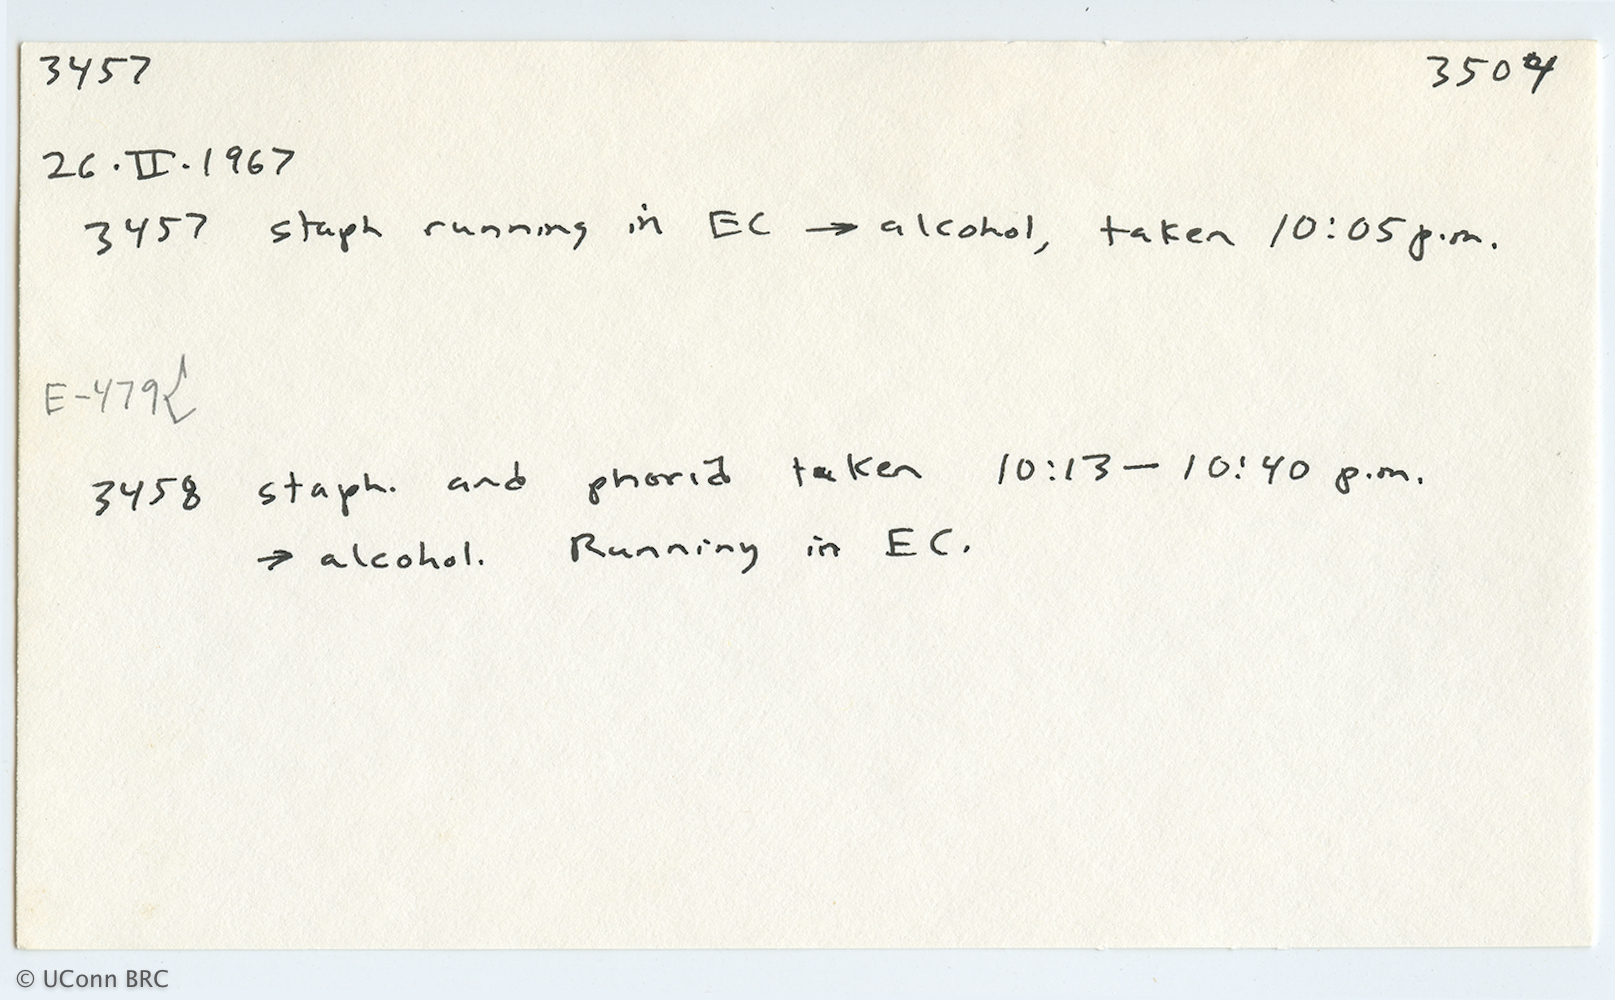 3457 3504
26.II.1967
3457 staph running in EC → alcohol, taken 10:05 p.m.
E-479{
3458 staph. and phorid taken 10:13 — 10:40 p.m.
→ alcohol. Running in EC.
© UConn BRC